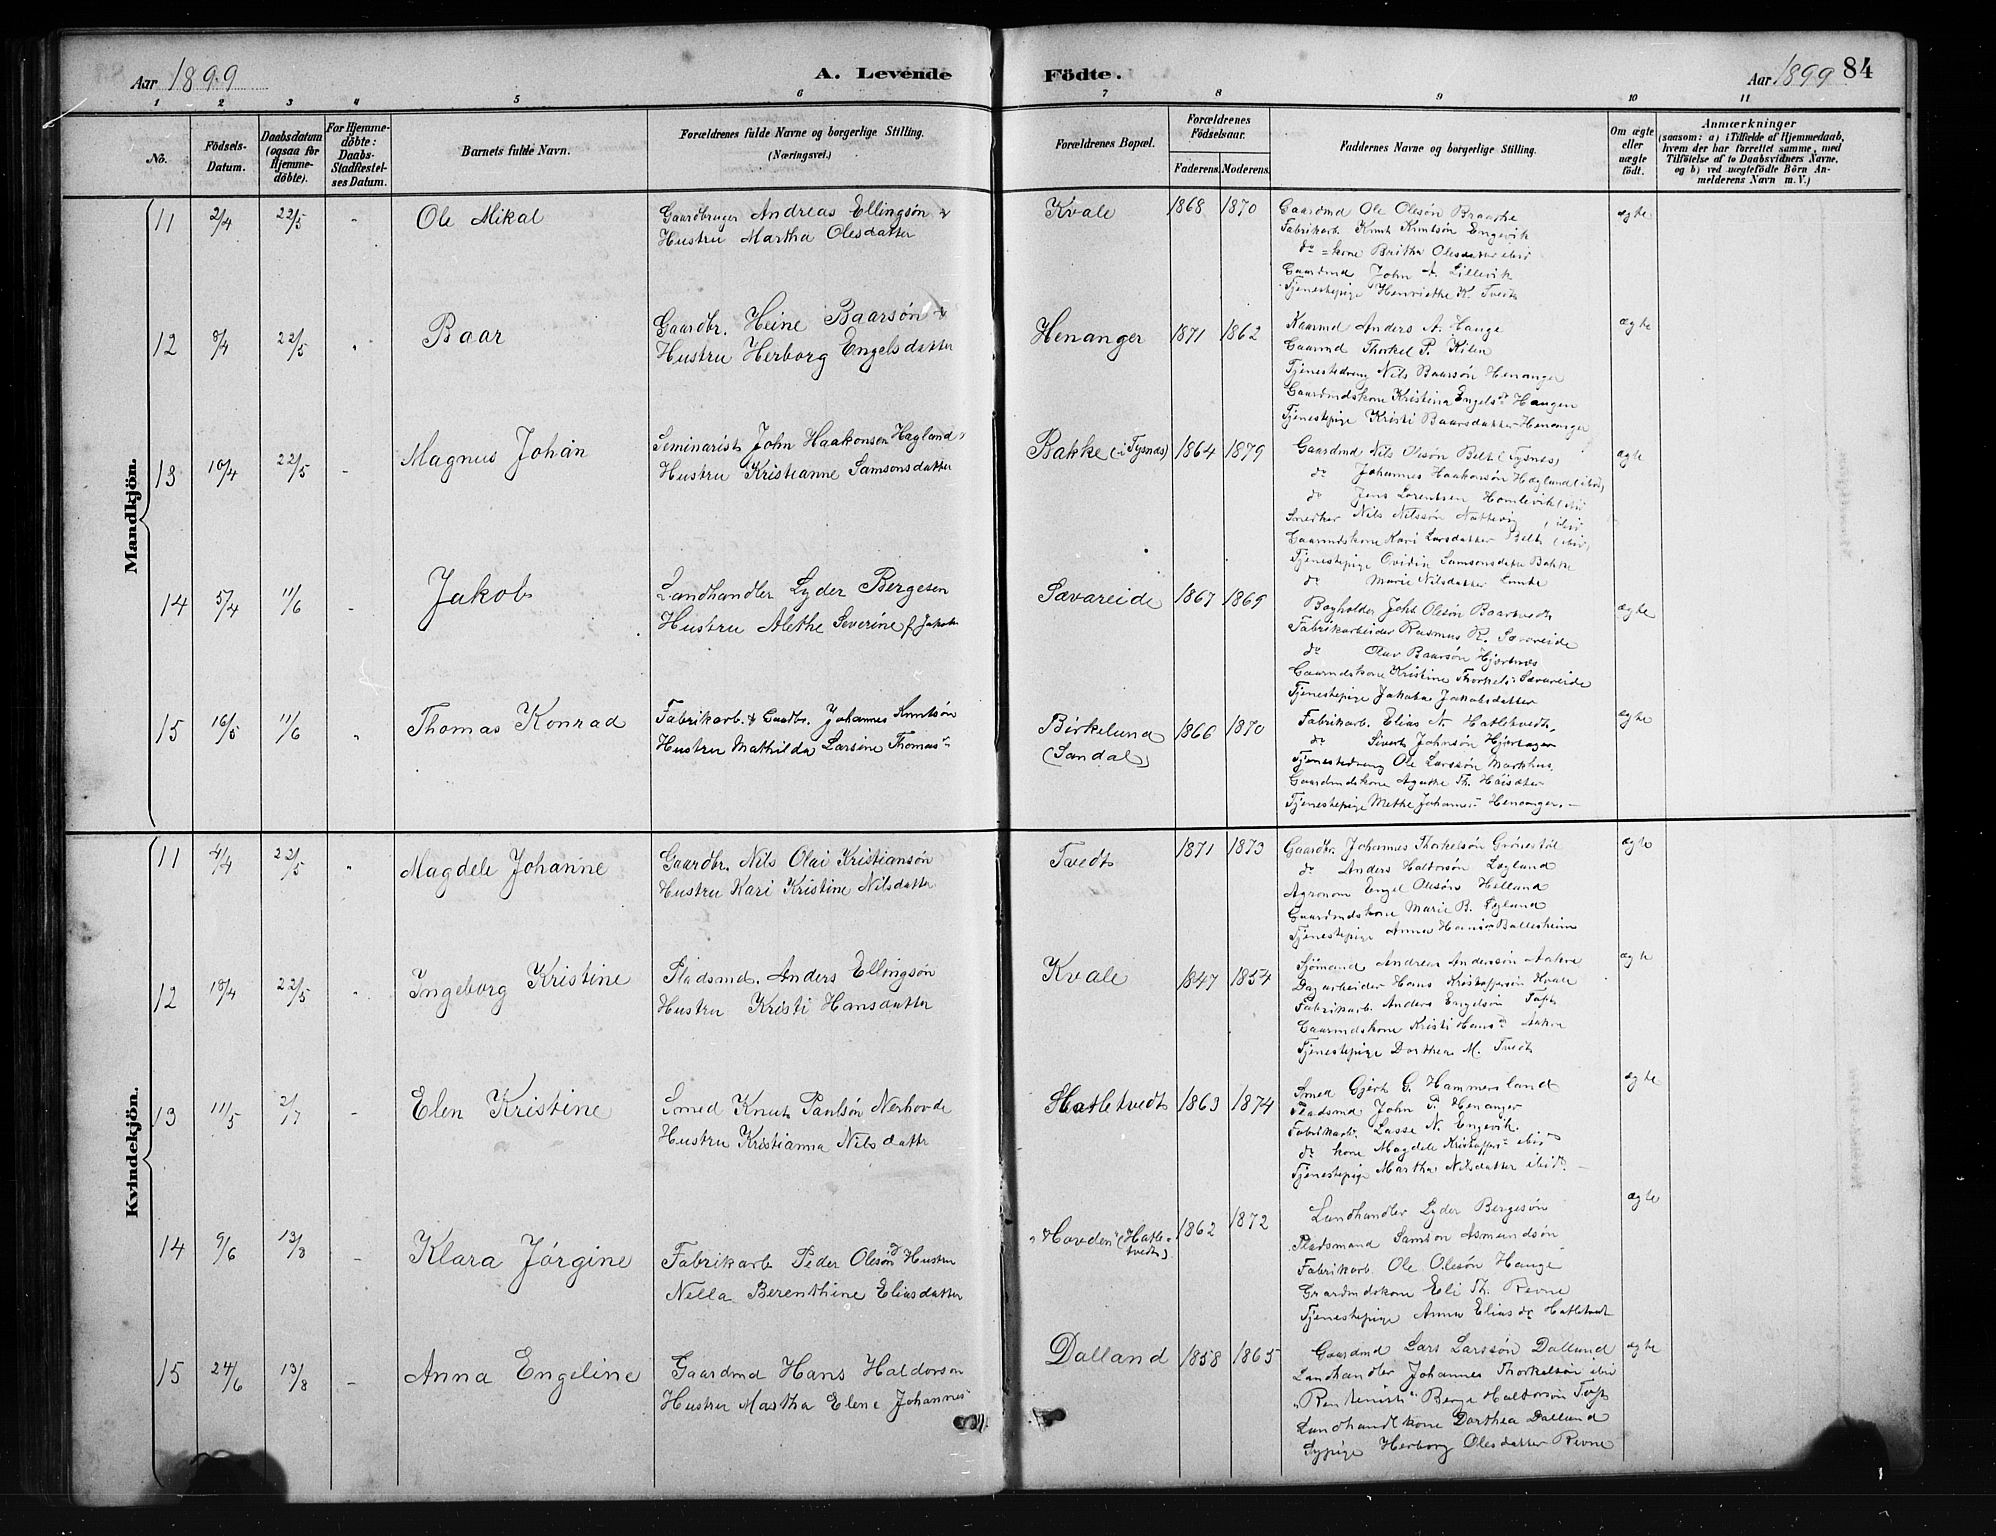 Aar 1899
A. Levende
Födte.
Aar 1899
84
1 2 3 4 5 6 7 8 9 10 11
No.
Födsels-
Datum.
Daabsdatum
(ogsaa for
Hjemme-
döbte).
For Hjemme-
döbte:
Daabs-
Stadfæstel-
ses Datum.
Barnets fulde Navn.
Forældrenes fulde Navne og borgerlige Stilling.
(Næringsvei.)
Forældrenes Bopæl.
Forældrenes
Födselsaar.
Faderens. Moderens.
Faddernes Navne og borgerlige Stilling.
Om ægte
eller
uægte
födt.
Anmærkninger
(saasom: a) i Tilfælde af Hjemmedaab,
hvem der har forrettet samme, med
Tilföielse af to Daabsvidners Navne,
og b) ved uægtefödte Börn An-
melderens Navn m. V.)
Mandkjön.
11 2/4 22/5 " Ole Mikal
Gaardbruger Andreas Ellingsön &
Hustru Martha Olesdatter
Kvale 1868 1870
Gaardmd Ole Olesön Braathe
Fabrikarb Knut Knutsön Engevik
do = kone Britha Olesdatter ibid
Gaardmd John A. Lillevik
Tjenestepige Henriethe K. Tvedt
ægte
12 8/4 22/5 " Baar
Gaardbr. Heine Baarsön &
Hustru Herborg Engelsdatter
Henanger 1871 1862
Kaarmd Anders A. Hauge
Gaarmd Thorkel P. Kilen
Tjenestedreng Nils Baarsön Henanger
Gaardmdskone Kristina Engelsdt Haugen
Tjenestepige Kristi Baarsdatter Henanger
ægte
13 10/4 22/5 - Magnus Johan
Seminarist John Haakonsen Hagland &
Hustru Kristianne Samsonsdatter
Bakke (i Tysnæs) 1864 1879
Gaardmd Nils Olsön Belt (Tysnæs)
do Johannes Haakonsön Hagland (ibid)
do Jens Lorentsen Homlevik (ibid
Smedker Nils Nilssön Nattevig (ibid
Gaarmdskone Kari Larsdatter Belt (ibid)
Tjenestepige Ovidia Samsonsdatter Bakke
do Marie Nilsdatter Lunde
ægte
14 5/4 11/6 - Jakob
Landhandler Lyder Bergesen
Hustru Alethe Severine f. Jakobs
Sævareide 1867 1869
Bogholder Johs Olesön Baartvedt
Fabrikarbeider Rasmus R. Sævareide
do Olav Baarsön Hjartnæs
Gaarmdskone Kristine Thorkels Sævareide
Tjenestepige Jakoba Jakobsdatter
ægte
15 16/5 11/6 " Thomas Konrad
Fabrikarb. & Gaardbr. Johannes Knutsön
Hustru Mathilda Larsine Thomas-
Birkelund
(Sandal) 1866 1870
Fabrikarb. Elias N. Hatletvedt,
do Sivert Johnsön Hjortager
Tjenestedreng Ole Larssön Markhus,
Gaardmdskone Agathe Th. Höisæter
Tjenestepige Methe Johannes- Henanger. -
ægte
Kvindekjön.
11 4/4 22/5 " Magdele Johanne
Gaardbr. Nils Olai Kristiansön
Hustru Kari Kristine Nilsdatter
Tvedt 1871 1873
Gaardbr. Johannes Thorkelsön Grönestöl
do Anders Haldorsön Lygland
Agronom Engel Olesön Helland
Gaardmdskone Marie B. Lygland
Tjenestepige Anna Hans- Ballesheim
ægte
12 18/4 22/5 - Ingeborg Kristine
Pladsmd. Anders Ellingsön
Hustru Kristi Hansdatter
Kvale 1847 1854
Sjömand Andreas Anderssön Aakre
Dagarbeider Hans Kristoffersön Kvale
Fabrikarb Anders Engelsön Toft
Gaarmdskone Kristi Hansdt Aakre
Tjenestepige Dorthea M. Tvedt
ægte
13 11/5 2/7 - Elen Kristine
Smed Knut Paulsön Nerhovde
Hustru Kristianna Nilsdattr
Hatletvedt 1863 1874
Smed Gjert G. Hammersland
Pladsmd John P. Henanger
Fabrikarb. Lasse N. Engevik.
do kone Magdele Kristoffers- ibid
Tjenestepige Martha Nilsdatter ibid. -
ægte
14 9/6 13/8 - Klara Jörgine
Fabrikarb Peder Olesön & Hustru
Nella Berenthine Eliasdatter
"Hovden" (Hatle-
tvedt) 1862 1872
Landhandler Lyder Bergesön
Pladsmand Samson Asmundsön
Fabrikarb. Ole Olesön Hauge
Gaardmdskone Eli Th. Revne
Tjenestepige Anna Eliasdt Hatletvedt
ægte
15 24/6 13/8 - Anna Engeline
Gaardmd Hans Haldorson
Hustru Martha Elene Johannes-
Dalland 1858 1865
Gaardmd Lars Larssön Dalland
Landhandler Johannes Thorkelsön ibid
"Rentenist" Berge Haldorsön Toft
Landhandlkone Dorthea Dalland
Sypige Herborg Olesdatter Revne
ægte